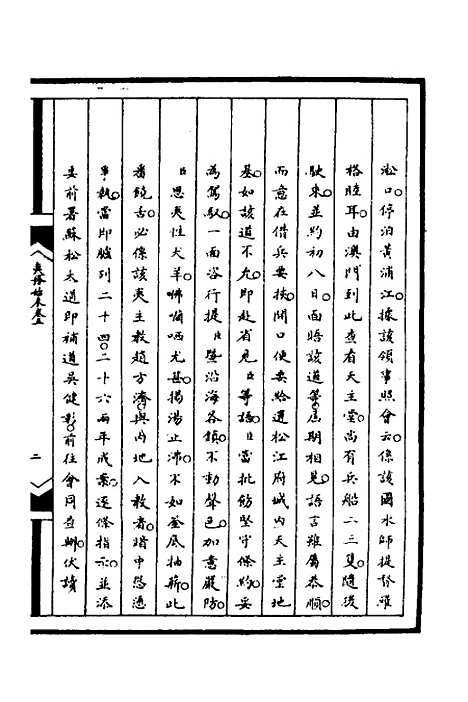 淞口。停泊黃浦江。據該領事照會云。係該國水師提督羅
格睦耳。由澳門到此查看天主堂。尚有兵船二三隻。隨後
駛來。並約初八日。面晤該道等。屆期相見。語言雖屬恭順。
而意在借兵要挾。開口便要給還松江府城內天主堂地
基。如該道不允。即赴省見臣等語。臣當批飭堅守條約。妥
為駕馭。一面咨行提臣。暨沿海各鎮。不動聲色。加意嚴防。
臣思夷性犬羊。咈嘣哂尤甚。揚湯止沸。不如釜底抽薪。此
番饒舌。必係該夷主教趙方濟。與內地入教者。暗中慫慂
事。執當即臚列二十四。二十六兩年成案。逐條指示。並添
委前署蘇松太道即補道吳健彰。前往會同查辦。伏讀
夷務始末卷五
二